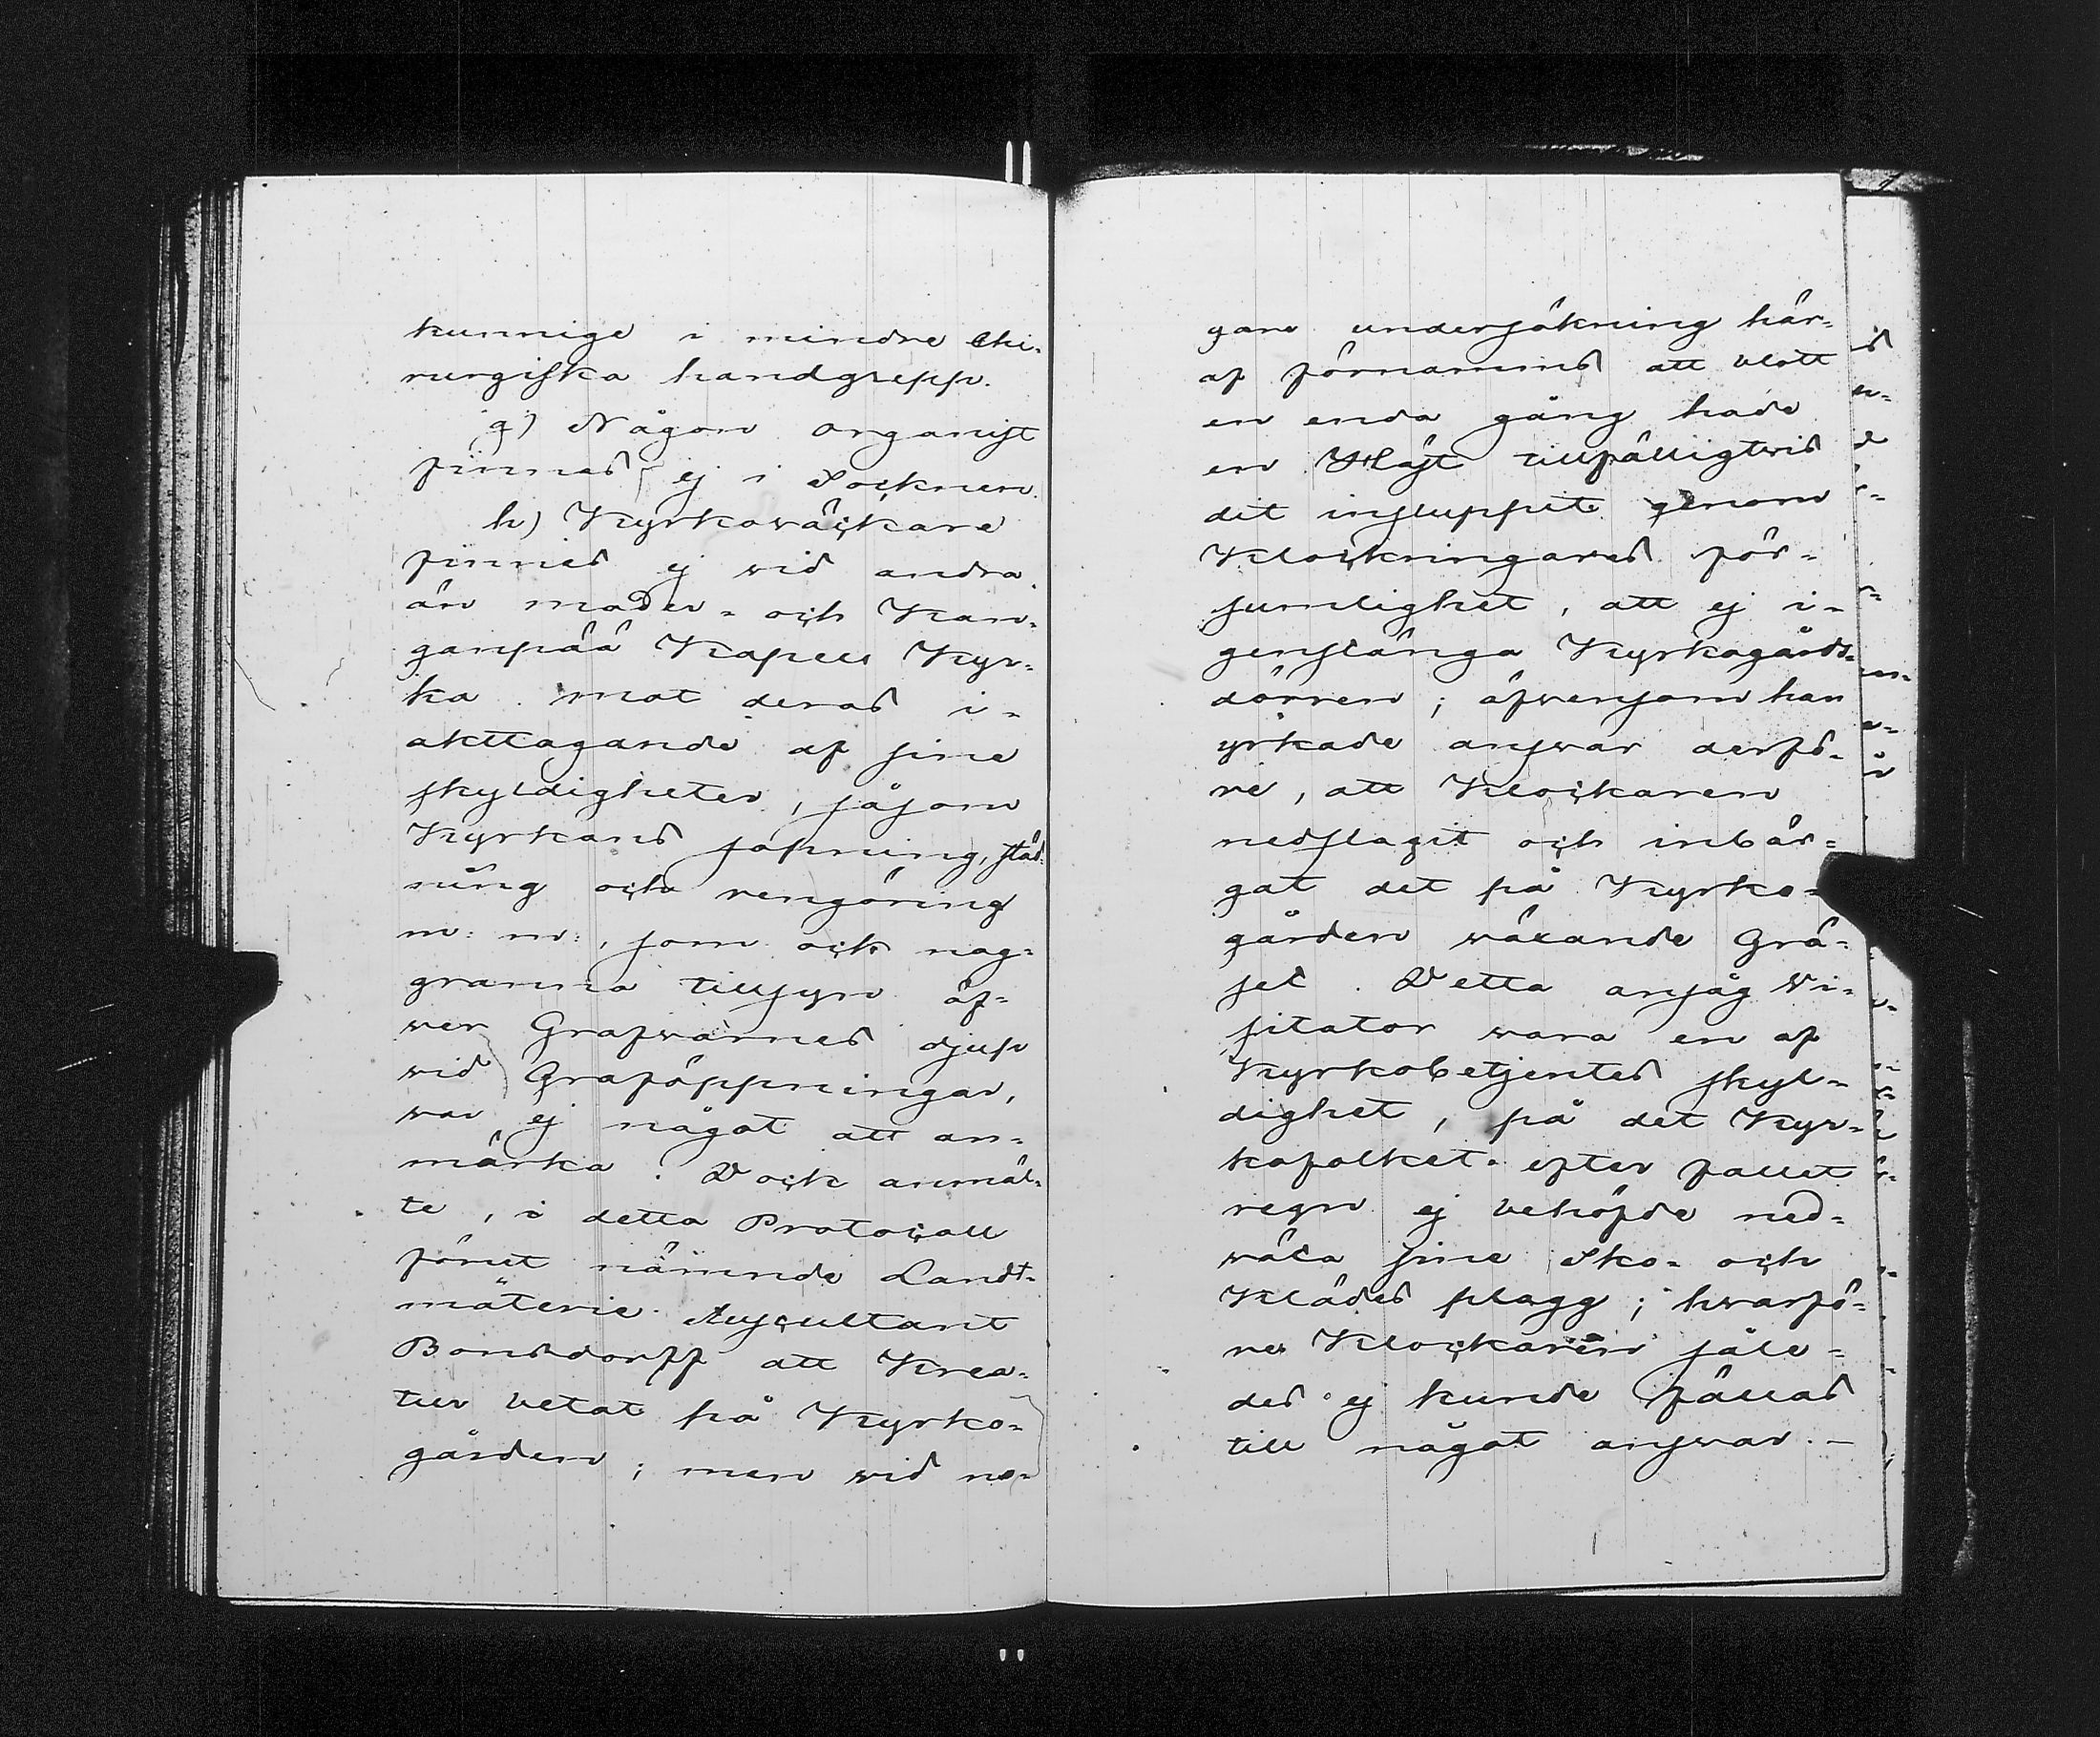 kunnige i mindre Chi-
rurgiska handgrepp.
g) Någon organist
finnes ej i Socknen.
h) Kyrkowäckare
finnes ej wid andra
än moder- och Kan-
ganpää Kapell Kyr-
ka. mot deras i-
akttagande af sine
skyldigheter, såsom
Kyrkans sopning, städ-
ning och rengöring
m: m:, som ock nog-
granna tillsyn öf-
wer Grafwarnes djup
wid Graföppningar,
war ej något att an-
märka. Dock anmäl-
te, i detta Protocoll
förut nämnde Landt-
mäterie Auscultant
Bonsdorff att Krea-
tur betat på Kyrko-
gården; men wid no-
gare undersökning här-
af förnamms att blott
en enda gång hade
en Häst tillfälligtwis
dit insluppit genom
Klockringares för-
sumlighet, att ej i-
genstänga Kyrkogårds-
dörren; äfwensom han
yrkade answar derfö-
re, att Klockaren
nedslagit och inbär-
gat det på Kyrko-
gården wäxande Grä-
set. Detta ansåg Vi-
sitator wara en af
Kyrkobetjentes skyl-
dighet, på det Kyr-
kofolket efter fallet
regn ej behöfde ned-
wäta sine Sko- och
Klädes plagg; hwarfö-
re Klockaren såle-
des ej kunde fällas
till något answar. —